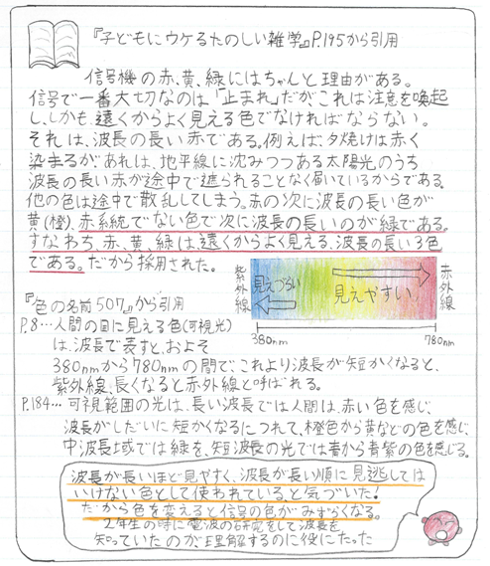 『子どもにウケるたのしい雑学』P.195から引用
信号機の赤、黄、緑にはちゃんと理由がある。
信号で一番大切なのは「止まれ」だがこれは注意を喚起
し、しかも遠くからよく見える色でなければならない。
それは、波長の長い赤である。例えば、夕焼けは赤く
染まるがあれは、地平線に沈みつつある太陽光のうち
波長の長い赤が途中で遮られることなく届いているからである。
他の色は途中で散乱してしまう。赤の次に波長の長い色が
黄(橙)、赤系統でない色で次に波長の長いのが緑である。
すなわち、赤、黄、緑は、遠くからよく見える、波長の長い3色
である。だから採用された。
紫外線
見えづらい
見えやすい
赤外線
380nm
780nm
『色の名前507』から引用
P.8…人間の目に見える色(可視光)
は、波長で表すと、およそ
380nmから780nmの間で、これより波長が短かくなると、
紫外線、長くなると赤外線と呼ばれる。
P.184…可視範囲の光は、長い波長では人間は、赤い色を感じ、
波長がしだいに短かくなるにつれて、橙色から黄などの色を感じ、
中波長域では緑を、短波長の光では青から青紫の色を感じる。
波長が長いほど見やすく、波長が長い順に見逃しては
いけない色として使われている、と気づいた!
だから色を変えると信号の色がみずらくなる。
2年生の時に電波の研究をして波長を
知っていたのが理解するのに役にたった